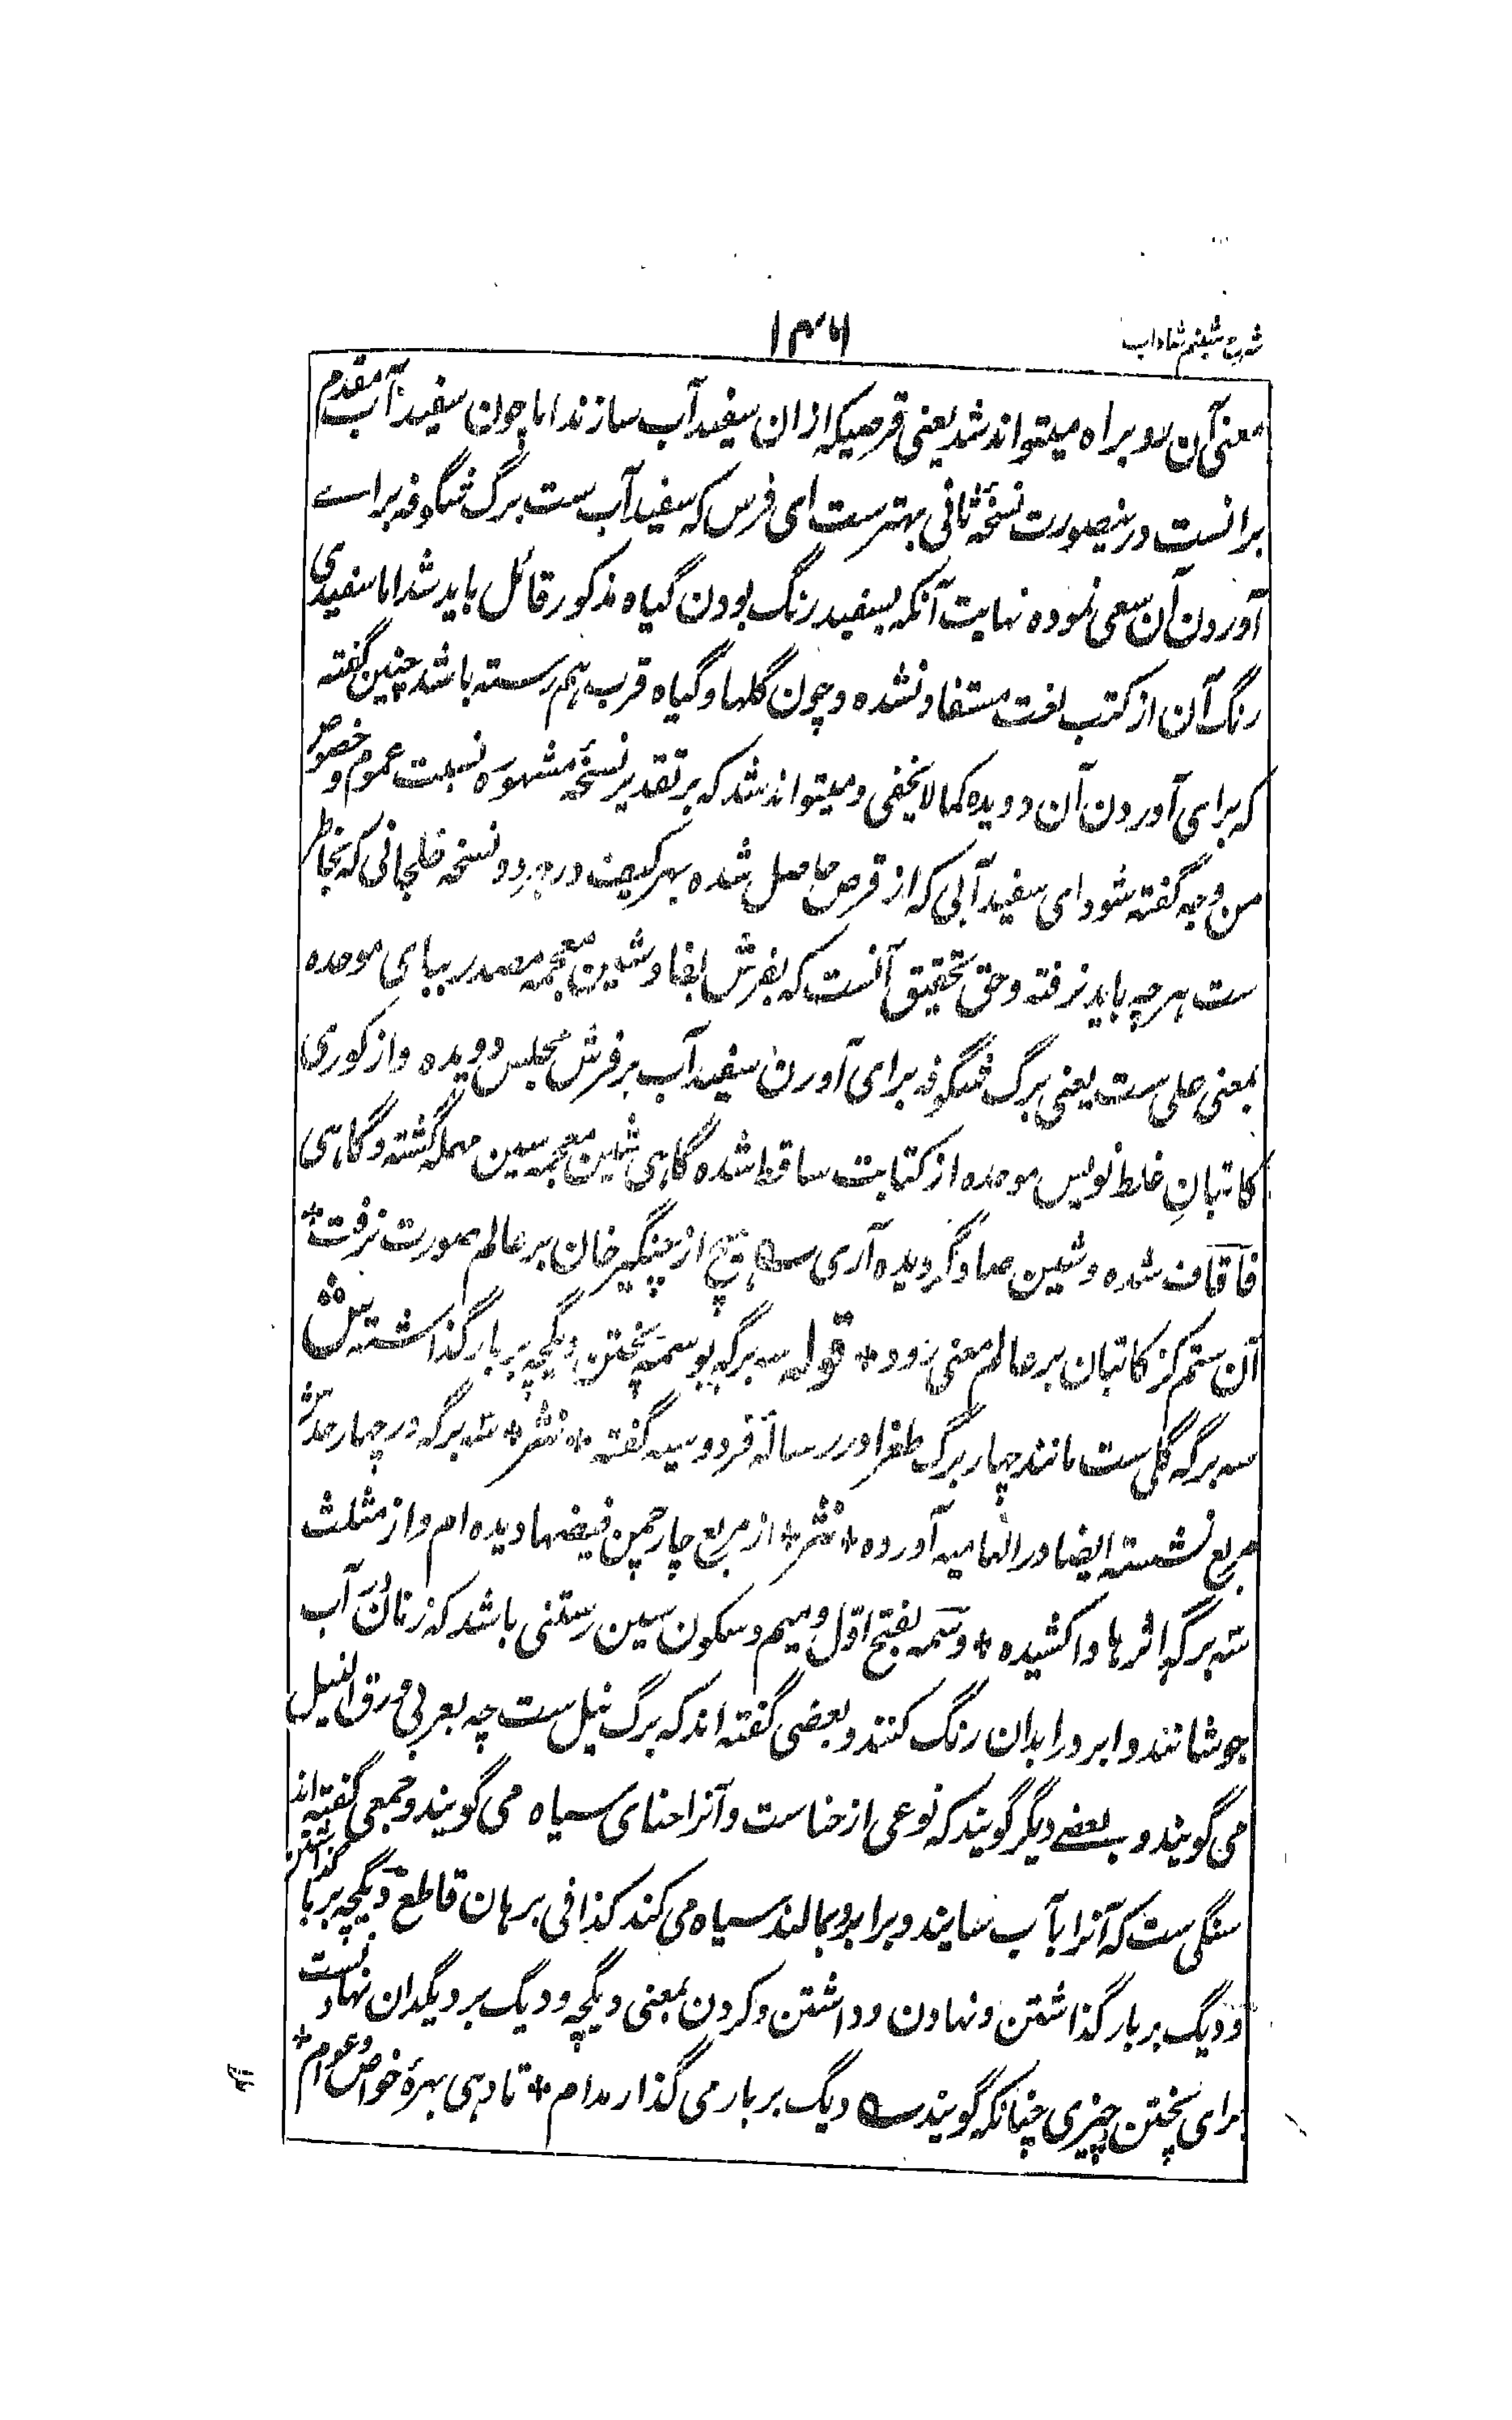 شرح شبنم شاداب
۱۴۶
معنی آن رو براه میتواند شد یعنی قرصیکه ازان سفید آب سازند اما چون سفید آب مقدم
برانست درینصورت نسخهٔ ثانی بهترست ای فرس که سفید آب ست برگ شگوفه براے
آوردن آن سعی نموده نهایت آنکه بسفید رنگ بودن گیاه مذکور قائل باید شد اما سفیدی
رنگ آن از کتب لغت مستفاد نشده و چون گلها و گیاه قرب هم رسته باشد چنین گفته
که برای آوردن آن دویده کما لا یخفی و میتواند شد که بر تقدیر نسخهٔ مشهوره نسبت عموم و خصوص
من وجه گفته شود ای سفید آبی که از قرص حاصل شده بهر کیف در هر دو نسخه خلجانی که بخاطر
ست هرچه باید نرفته و حق تحقیق آنست که بفرش بفا و شین معجمه مصدر ببای موحده
بمعنی علی ست یعنی برگ شگوفه برای آورن سفید آب بر فرش مجلس دویده و از کوری
کاتبانِ غلط نویس موحده از کتابت ساقط شده گاهی شین معجمه سین مهمله گشته و گاهی
فا قاف شده و شین صاد گردیده آری ؎ هیچ از چنگیز خان بر عالم صورت نرفت *
آن ستم کز کاتبان بر عالم معنی رود * قوله سه برگه بوسمه پختن دیگچه بر بار گذاشته ش
سه برگه گلی ست مانند چهار برگ طغرا در رسالهٔ فردوسیه گفته * نثر * سه برگه در چهار حد
مربع نشسته ایضا در الهامیه آورده * نثر * از مربع چار چمن فیضها دیده ام و از مثلث
سه برگه اثرها واکشیده * وسمه بفتح اوّل و میم و سکون سین رستنی باشد که زنان در آب
جوشانند و ابرو را بدان رنگ کنند و بعضی گفته اند که برگ نیل ست چه بعربی ورق النیل
می گویند و بعضے دیگر گویند که نوعی از حناست و آنرا حنای سیاه می گویند و جمعی گفته اند
سنگی ست که آنرا بآب سایند و برابرو بمالند سیاه می کند کذا فی برهان قاطع دیگچه بر بار گذاشتن
و دیگ بر بار گذاشتن و نهادن و داشتن و کردن بمعنی دیگچه و دیگ بر دیگدان نهادنست
برای پختن چیزی چنانکه گویند ؎ دیگ بر بار می گذار مدام * تا دهی بهرهٔ خواص و عوام *